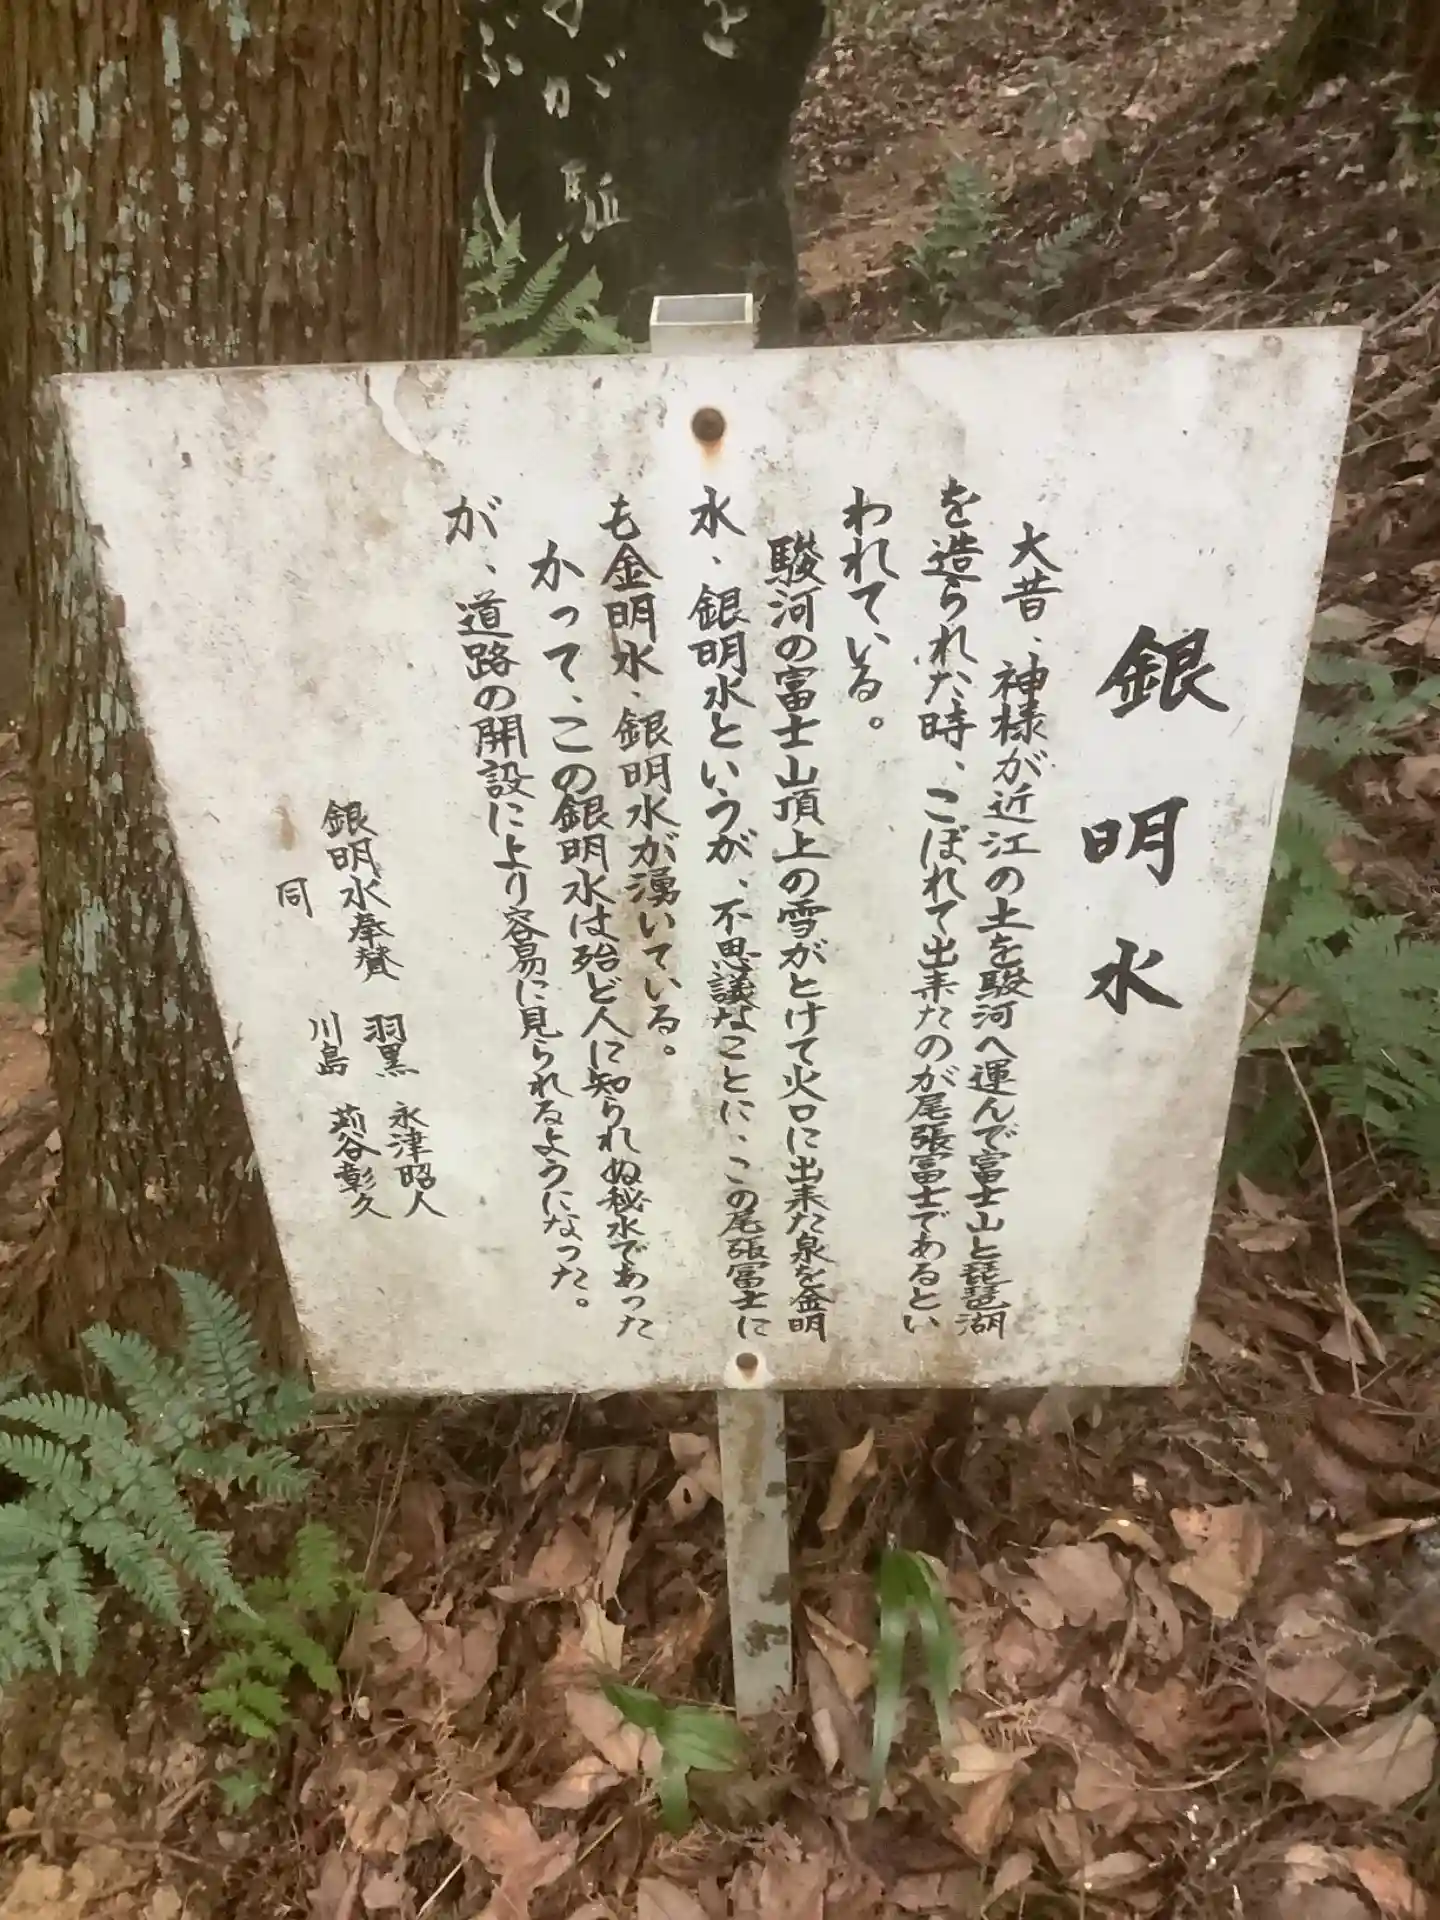 銀明水
大昔、神様が近江の土を駿河へ運んで富士山と琵琶湖
を造られた時、こぼれて出来たのが尾張冨士であるとい
われている。
駿河の富士山頂上の雪がとけて火口に出来た泉を金明
水、銀明水というが、不思議なことに、この尾張冨士に
も金明水、銀明水が湧いている。
かって、この銀明水は殆ど人に知られぬ秘水であった
が、道路の開設により容易に見られるようになった。
銀明水奉賛 羽黒 永津昭人
同 川島 苅谷彰久